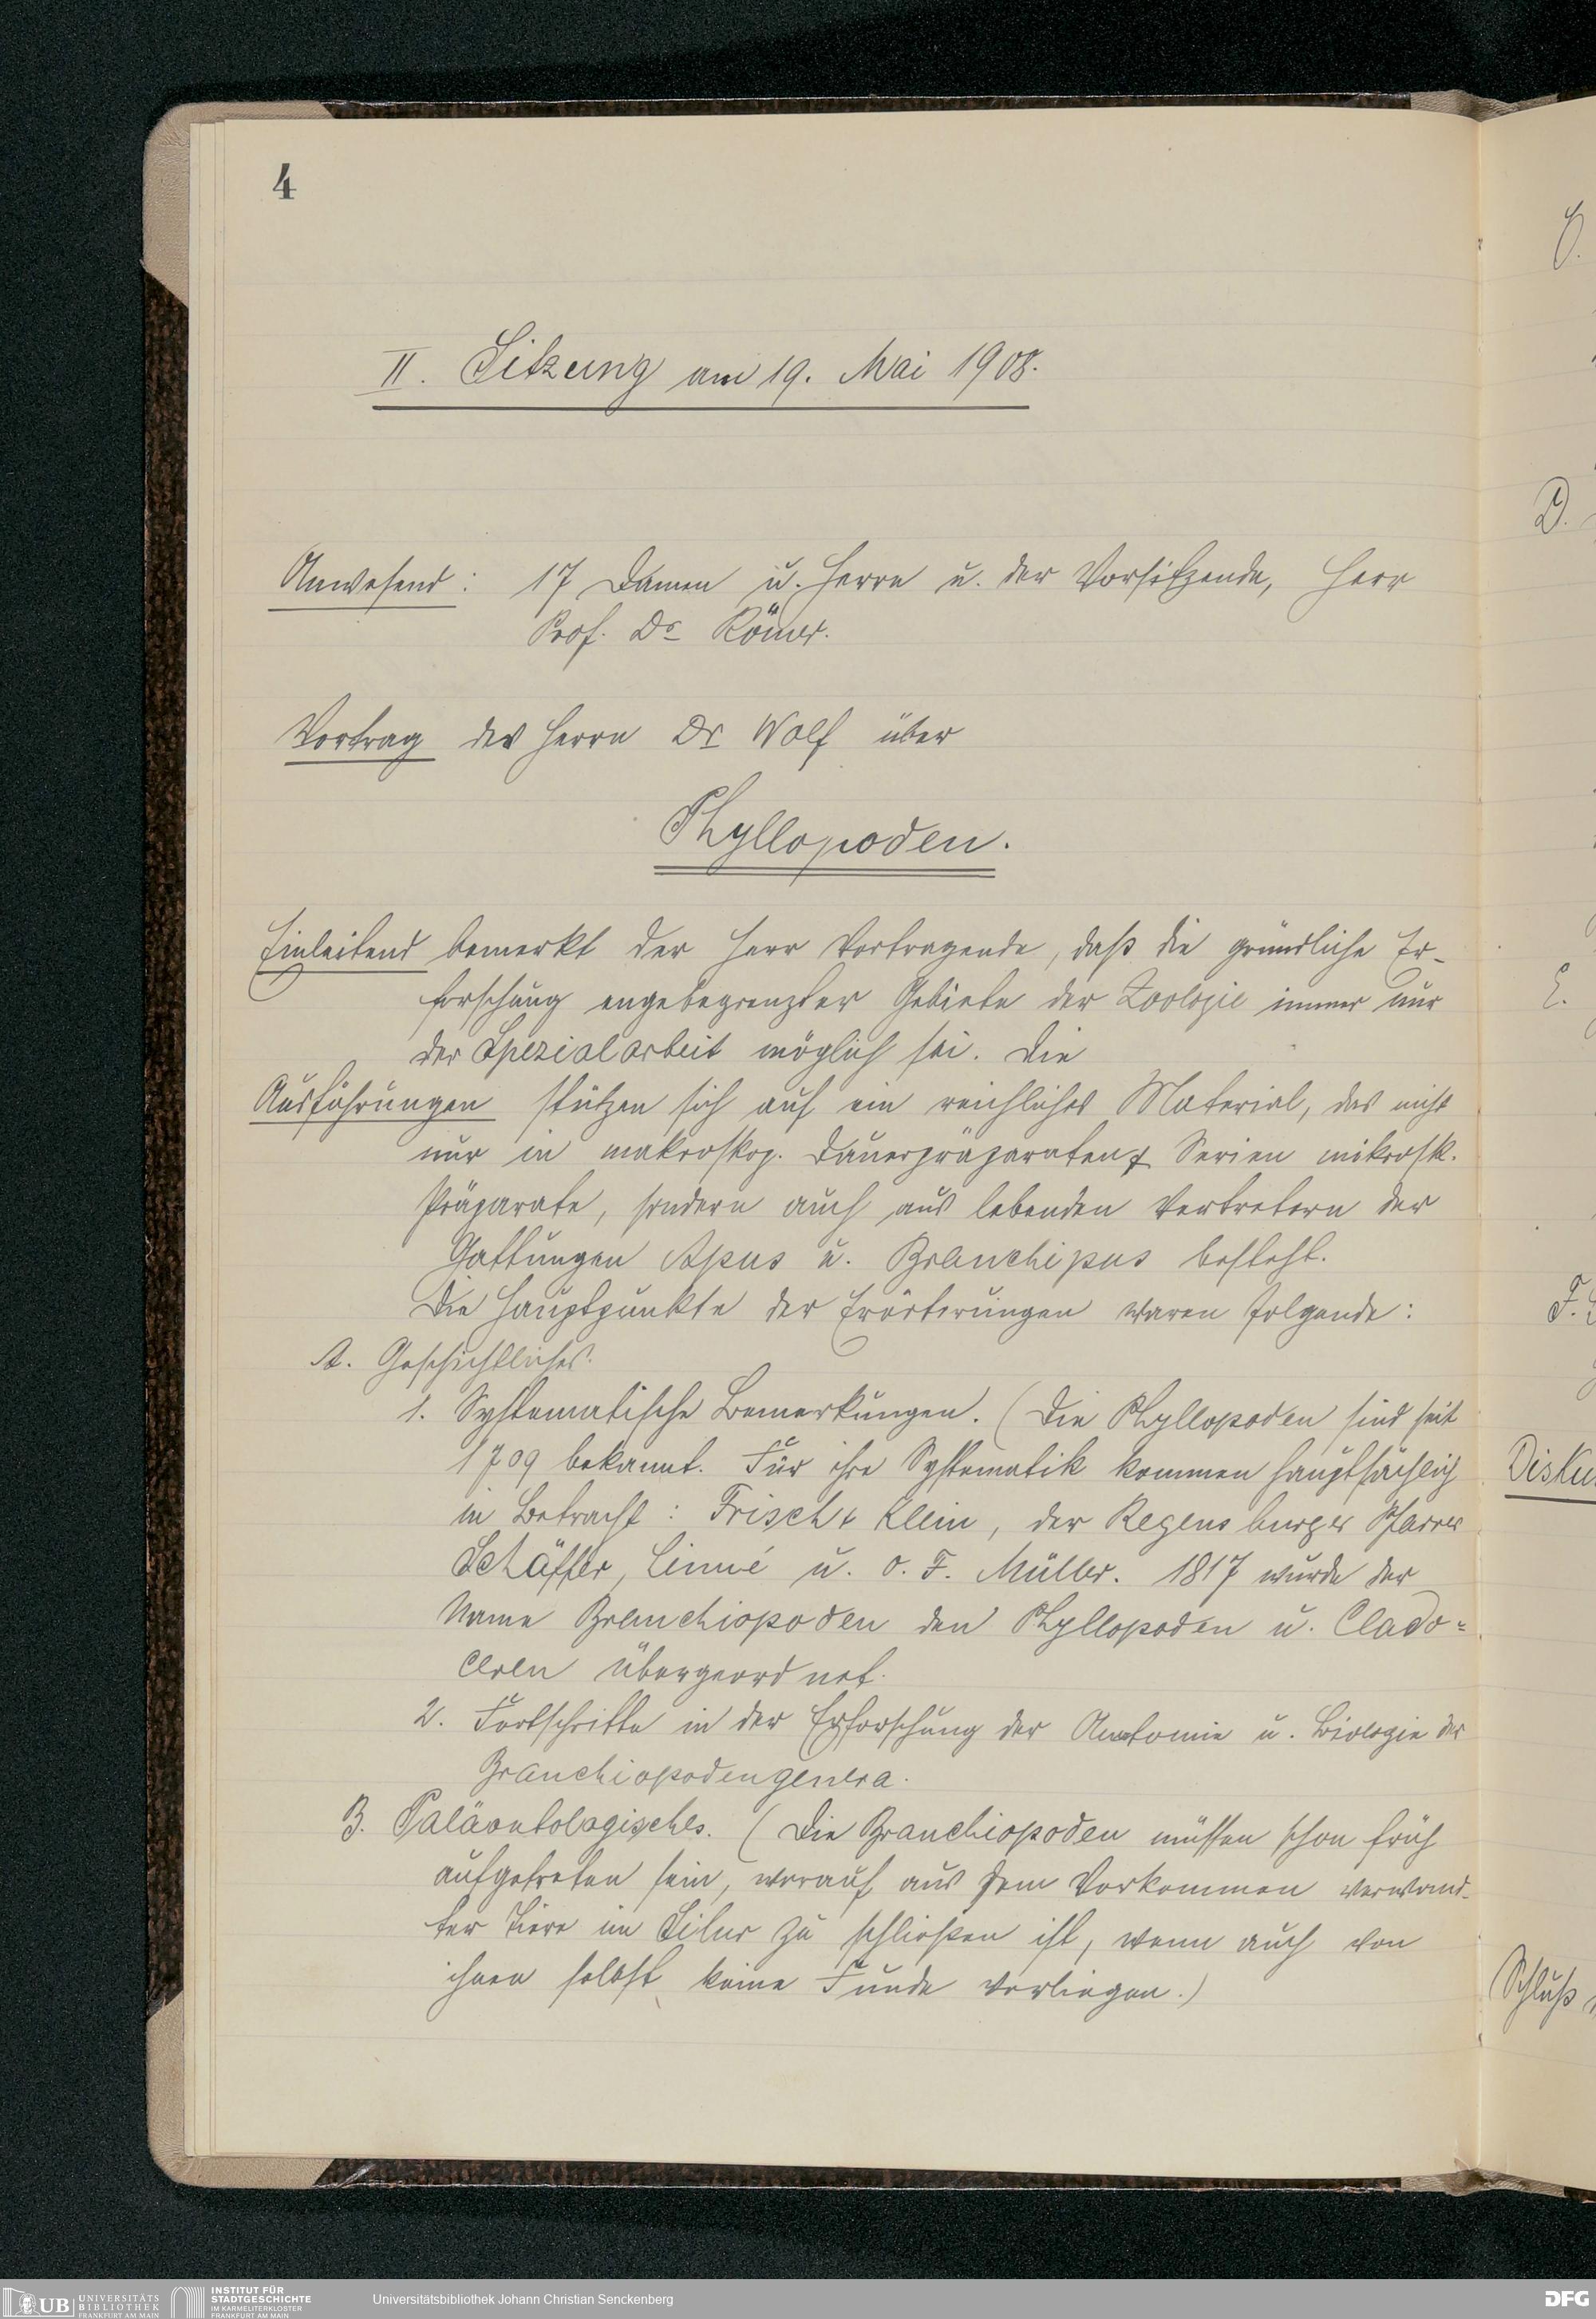 4
II. Sitzung am 19. Mai 1908.
Anwesend: 17 Damen u. Herrn u. der Vorsitzende, Herr
Prof. Dr Römer.
Vortrag des Herrn Dr Wolf über
Phyllopoden.
Einleitend bemerkt der Herr Vortragende, daß die gründliche Er-
forschung engbegrenzter Gebiete der Zoologie immer nur
der Spezialarbeit möglich sei. Die
Ausführungen stützen sich auf ein reichliches Material, das nicht
nur in makroskop. Dauerpräparaten & Serien mikrosk.
Präparate, sondern auch aus lebenden Vertretern der
Gattungen Apus u. Branchipus besteht.
Die Hauptpunkte der Erörterungen waren folgende:
A. Geschichtliches.
1. Systematische Bemerkungen. (Die Phyllopoden sind seit
1709 bekannt. Für ihre Systematik kommen hauptsächlich
in Betracht: Frisch & Klein, der Regensburger Pfarrer
Schäffer, Linné u. O. F. Müller. 1817 wurde der
Name Branchiopoden den Phyllopoden u. Clado=
ceren übergeordnet.
2. Fortschritte in der Erforschung der Anatomie u. Biologie der
Branchiopodengenera.
B. Paläontologisches. (Die Branchiopoden müssen schon früh
aufgetreten sein, worauf aus dem Vorkommen verwand-
ter Tiere im Silur zu schließen ist, wenn auch von
ihnen selbst keine Funde vorliegen.)
D.
E.
F.
Schluß
UB UNIVERSITÄTS
BIBLIOTHEK
FRANKFURT AM MAIN
INSTITUT FÜR
STADTGESCHICHTE
IM KARMELITERKLOSTER
FRANKFURT AM MAIN
Universitätsbibliothek Johann Christian Senckenberg
DFG